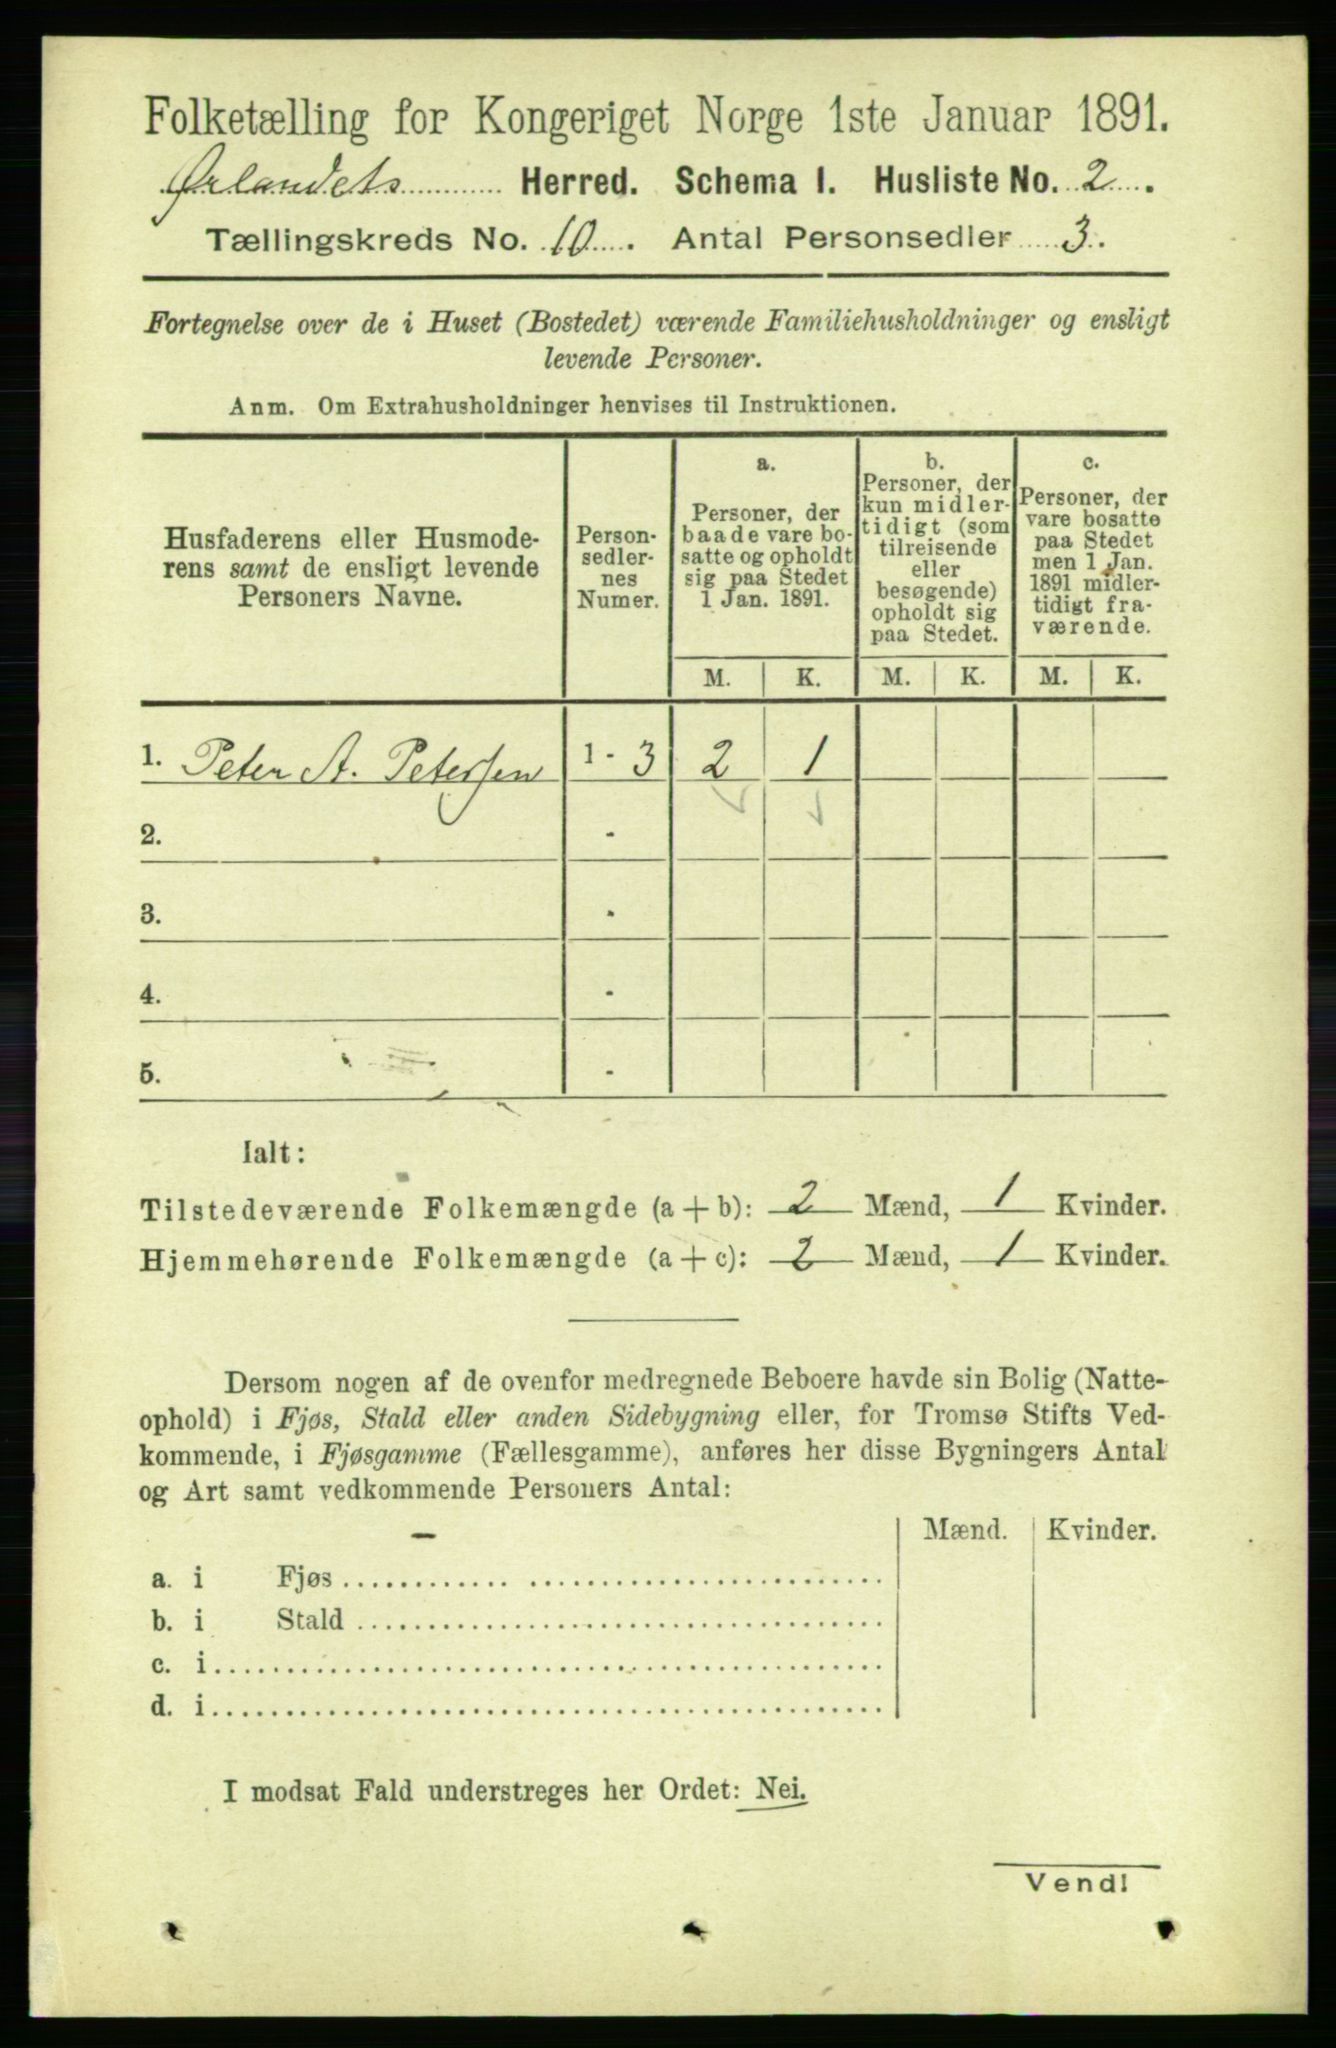 Folketælling for Kongeriget Norge 1ste Januar 1891.
Ørlandets Herred. Schema I. Husliste No. 2.
Tællingskreds No. 10. Antal Personsedler 3.
Fortegnelse over de i Huset (Bostedet) værende Familiehusholdninger og ensligt
levende Personer.
Anm. Om Extrahusholdninger henvises til Instruktionen.
Husfaderens eller Husmode-
rens samt de ensligt levende
Personers Navne.
Person-
sedler-
nes
Numer.
a.
Personer, der
baade vare bo-
satte og opholdt
sig paa Stedet
1 Jan. 1891.
b.
Personer, der
kun midler-
tidigt (som
tilreisende
eller
besøgende)
opholdt sig
paa Stedet.
c.
Personer, der
vare bosatte
paa Stedet
men 1 Jan.
1891 midler-
tidigt fra-
værende.
M. K. M. K. M. K.
1. Peter A. Petersen 1 - 3 2 1
2. -
3. -
4. -
5. -
Ialt:
Tilstedeværende Folkemængde (a + b): 2 Mænd, 1 Kvinder.
Hjemmehørende Folkemængde (a + c): 2 Mænd, 1 Kvinder.
Dersom nogen af de ovenfor medregnede Beboere havde sin Bolig (Natte-
ophold) i Fjøs, Stald eller anden Sidebygning eller, for Tromsø Stifts Ved-
kommende, i Fjøsgamme (Fællesgamme), anføres her disse Bygningers Antal
og Art samt vedkommende Personers Antal:
Mænd. Kvinder.
a. i Fjøs
b. i Stald
c. i
d. i
I modsat Fald understreges her Ordet: Nei.
Vend!